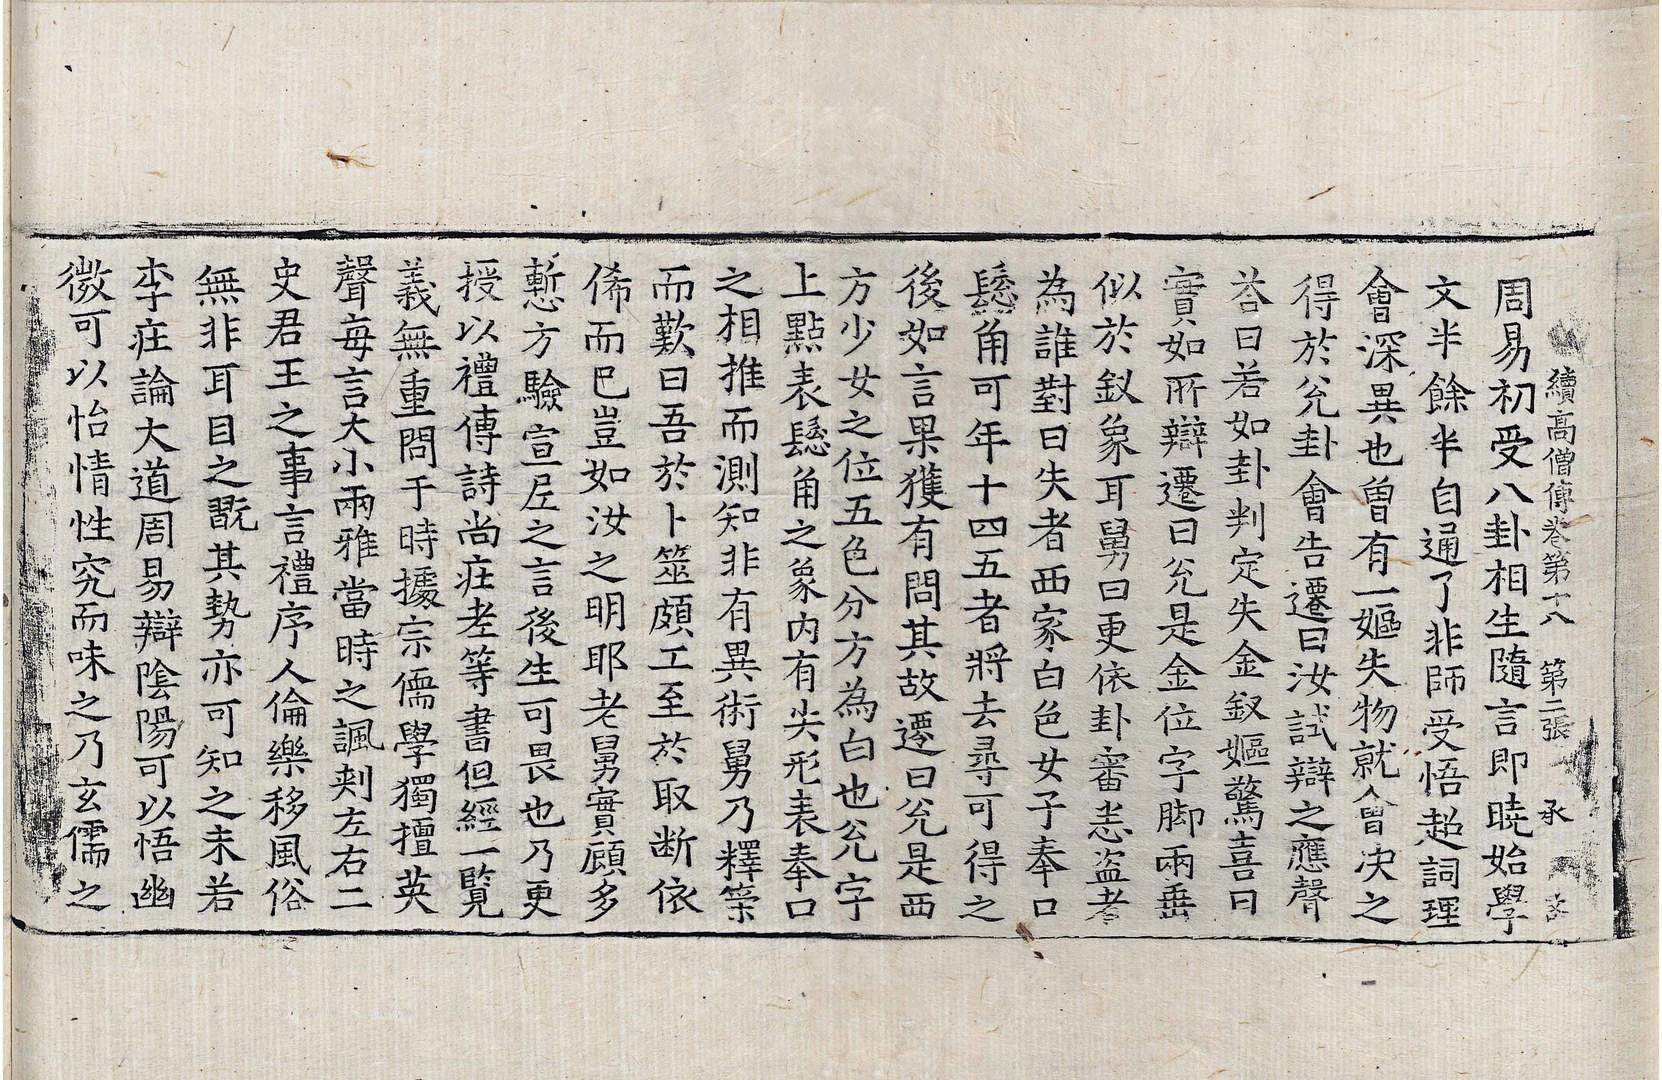 續高僧傳卷第十八　第二張　承
周易初受八卦相生隨言即曉始學
文半餘半自通了非師受悟超詞理
會深異也曾有一嫗失物就會決之
得於兊卦會告遷曰汝試辯之應聲
荅曰若如卦判定失金釵嫗驚喜曰
實如所辯遷曰兊是金位字脚兩垂
似於釵象耳舅曰更依卦審悉盗者
為誰對曰失者西家白色女子奉口
髲角可年十四五者將去尋可得之
後如言果獲有問其故遷曰兊是西
方少女之位五色分方為白也兊字
上點表髲角之象内有尖形表奉口
之相推而測知非有異術舅乃釋䇿
而歎曰吾於卜筮頗工至於取断依
俙而巳豈如汝之明耶老舅實顧多
慙方驗宣尼之言後生可畏也乃更
授以禮傳詩尚庄老等書但經一覧
義無重問于時據宗儒學獨擅英
聲每言大小兩雅當時之諷刾左右二
史君王之事言禮序人倫樂移風俗
無非耳目之翫其勢亦可知之未若
李庄論大道周易辯陰陽可以悟幽
微可以怡情性究而味之乃玄儒之